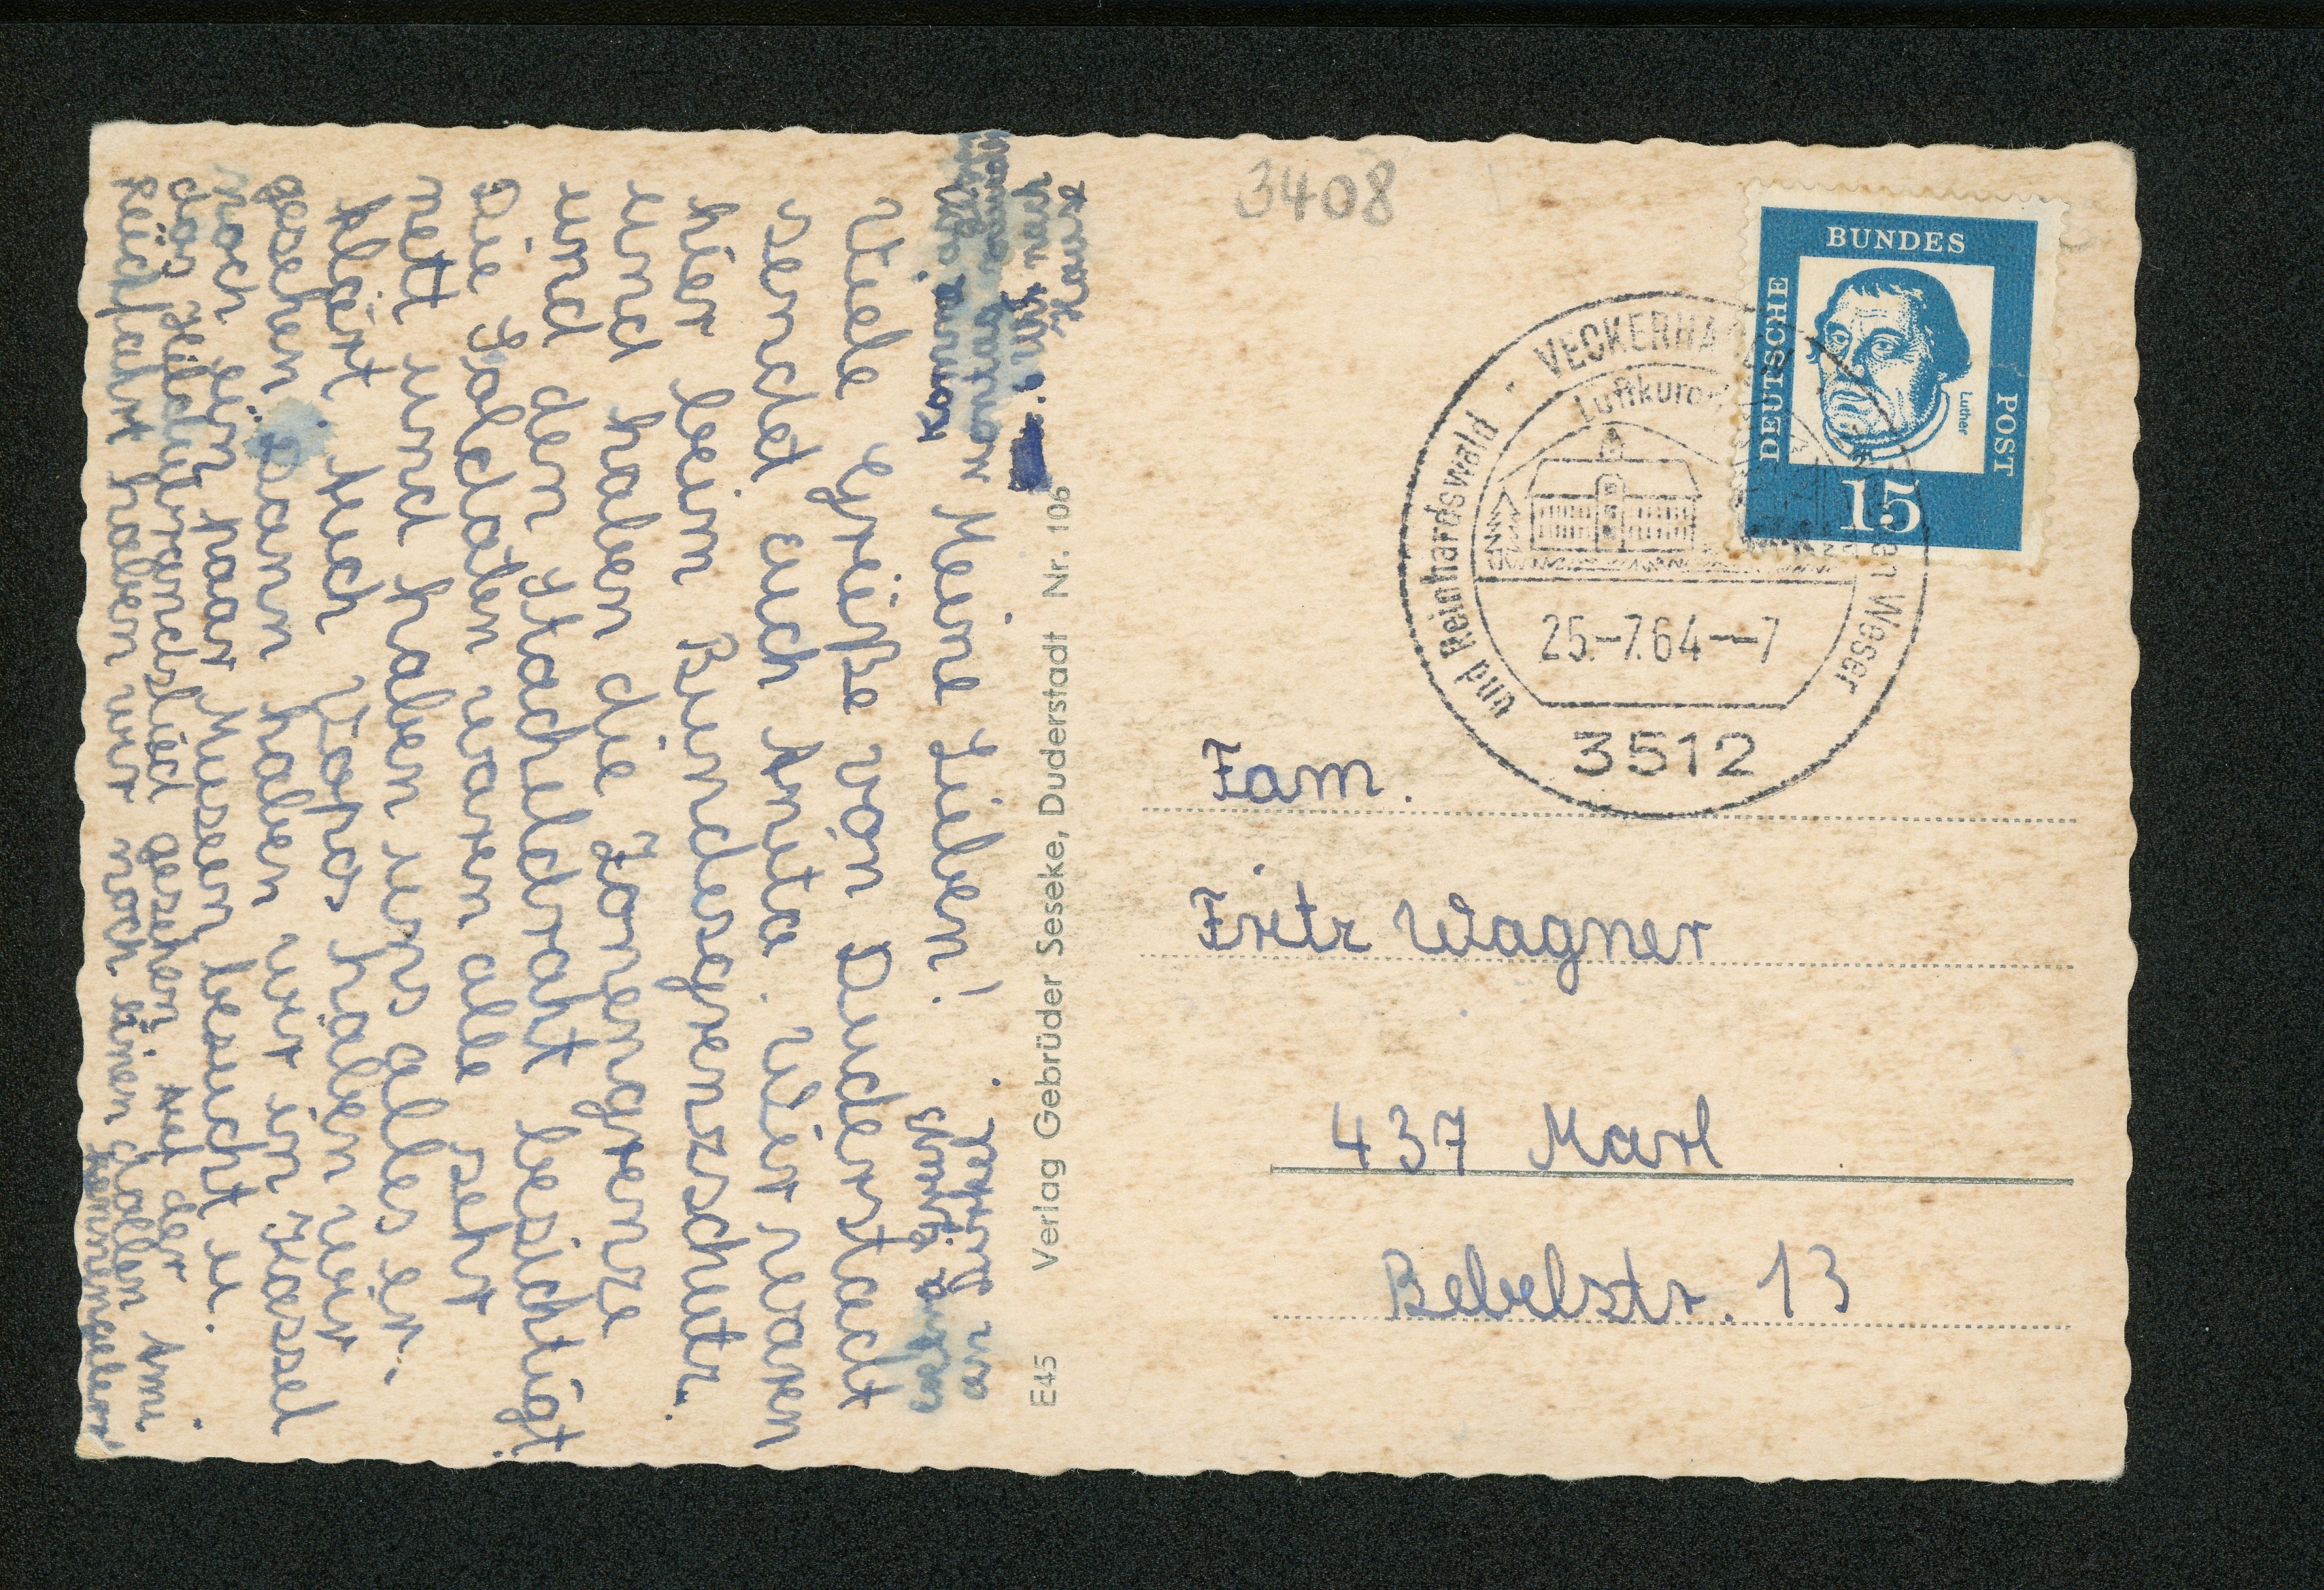 Meine Lieben!
Viele Grüße von Duderstadt
sendet euch Anita. Wir waren
hier beim Bundesgrenzschutz.
und haben die Zonengrenze
und den Stacheldraht besichtigt.
Die Soldaten waren alle sehr
nett und haben uns alles er-
klärt. Auch Vopos haben wir
gesehen. Dann haben wir in Kassel
noch ein paar Museen besucht u.
das Hildebrandslied gesehen. Auf der
Rückfahrt haben wir noch einen dollen Ami
kennengelernt.
Komme am
Montag
Uhr nach
Hause
an Jurkel
3408
DEUTSCHE BUNDES POST
Luther
15
VECKERHA
Luftkurort
und Reinhardswald
en Weser
25.-7.64--7
3512
Fam.
Fritz Wagner
437 Marl
Bebelstr. 13
E45 Verlag Gebrüder Seseke, Duderstadt Nr. 106